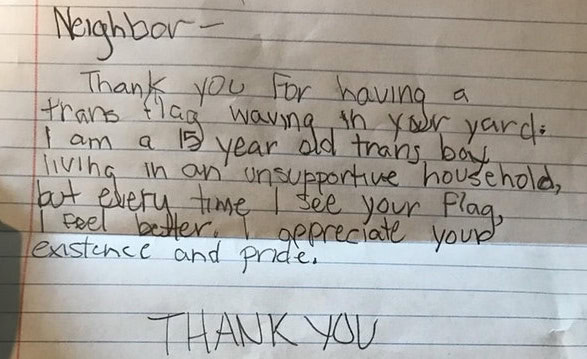 Neighbor-
Thank you for having a
trans flag waving in your yard.
I am a 15 year old trans boy
living in an unsupportive household,
but every time I see your flag,
I feel better. I appreciate your
existence and pride.
THANK YOU